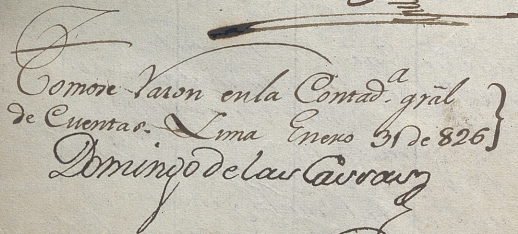 Tomose Razon en la Contad.ª gräl
de Cuentas. Lima Enero 31 de 826
Domingo de las Casas